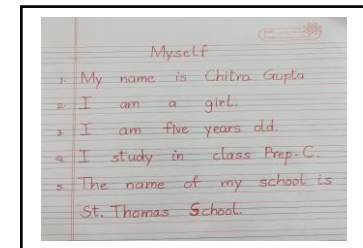 Myself
1. My name is Chitra Gupta
2. I am a girl.
3. I am five years old.
4. I study in class Prep-C.
5. The name of my school is
St. Thomas School.